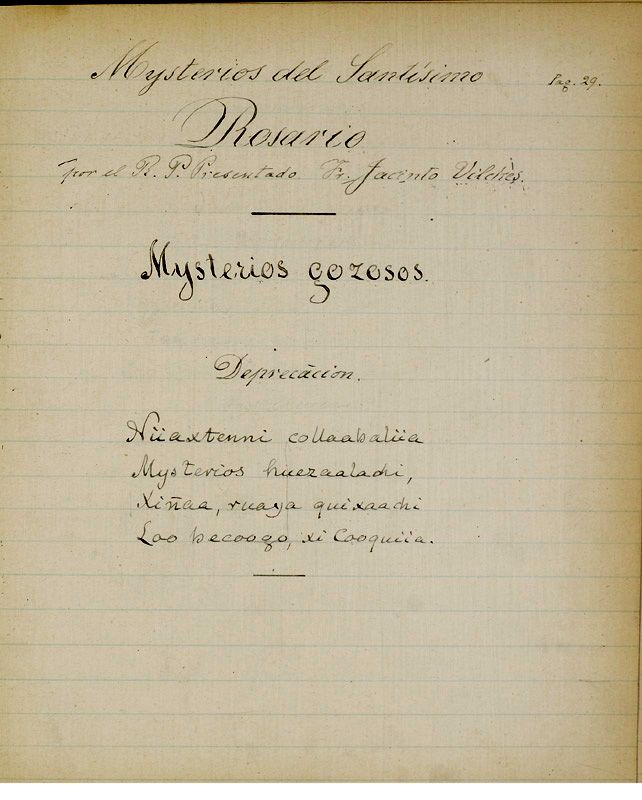 Mysterios del Santísimo
Pag. 29.
Rosario
por el R. P. Presentado Fr. Jacinto Vilchis.
Mysterios gozosos.
Deprecacion.
Niiaxtenni collaabaliia
Mysterios huezaalachi,
Xiñaa, ruaya quixaachi
Loo becoogo, xi Cooquiia.